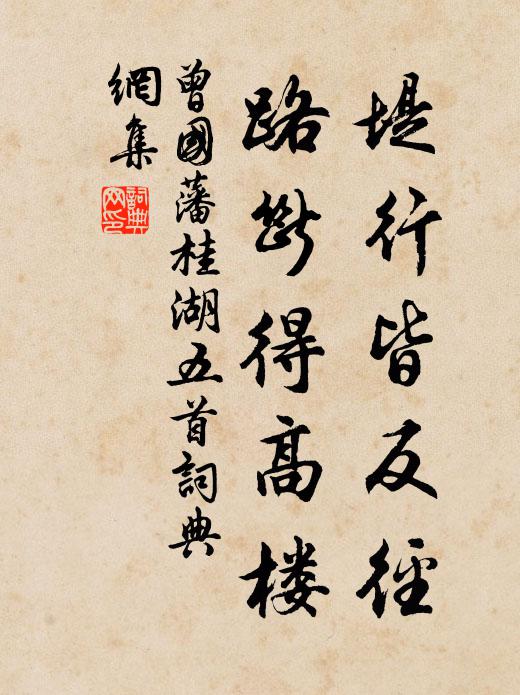 堤行皆反径
路断得高楼
曾國藩桂湖五首詞典
網集
詞典
网印